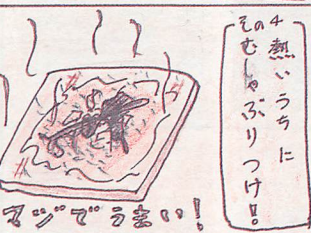 その4
熱いうちに
むしゃぶりつけ!
マジでうまい!